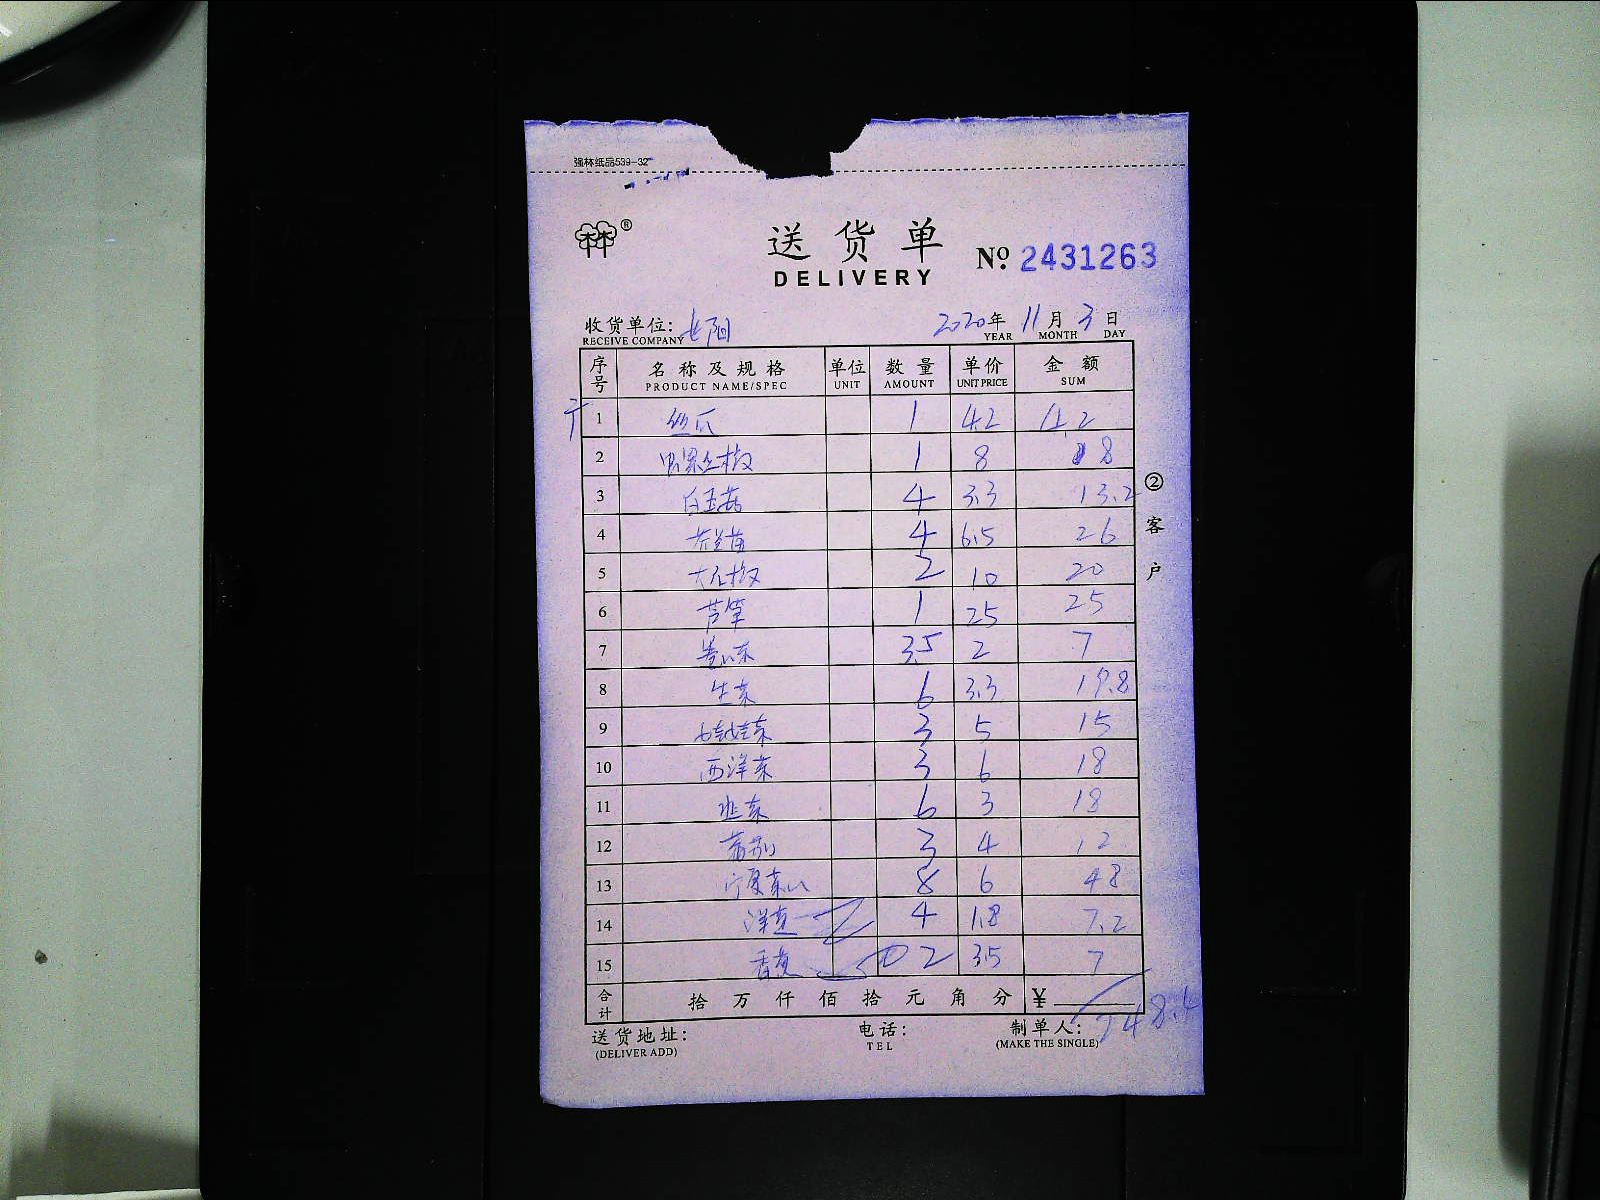 强林纸品539-32
林林®
送货单 No. 2431263
DELIVERY
收货单位: 长阳 2020年 11月 3日
RECEIVE COMPANY YEAR MONTH DAY
序号 名称及规格 单位 数量 单价 金额
PRODUCT NAME/SPEC UNIT AMOUNT UNIT PRICE SUM
1 丝瓜 1 4.2 4.2
2 1 8 8
3 白玉菇 4 3.3 13.2
4 4 6.5 26
5 2 10 20
6 芦笋 1 25 25
7 3.5 2 7
8 生菜 6 3.3 19.8
9 娃娃菜 3 5 15
10 西洋菜 3 6 18
11 韭菜 6 3 18
12 3 4 12
13 宁夏菜心 8 6 48
14 洋葱 4 1.8 7.2
15 2 3.5 7
合计 拾万仟佰拾元角分 ¥ 248.4
送货地址: 电话: 制单人:
(DELIVER ADD) TEL (MAKE THE SINGLE)
②客户